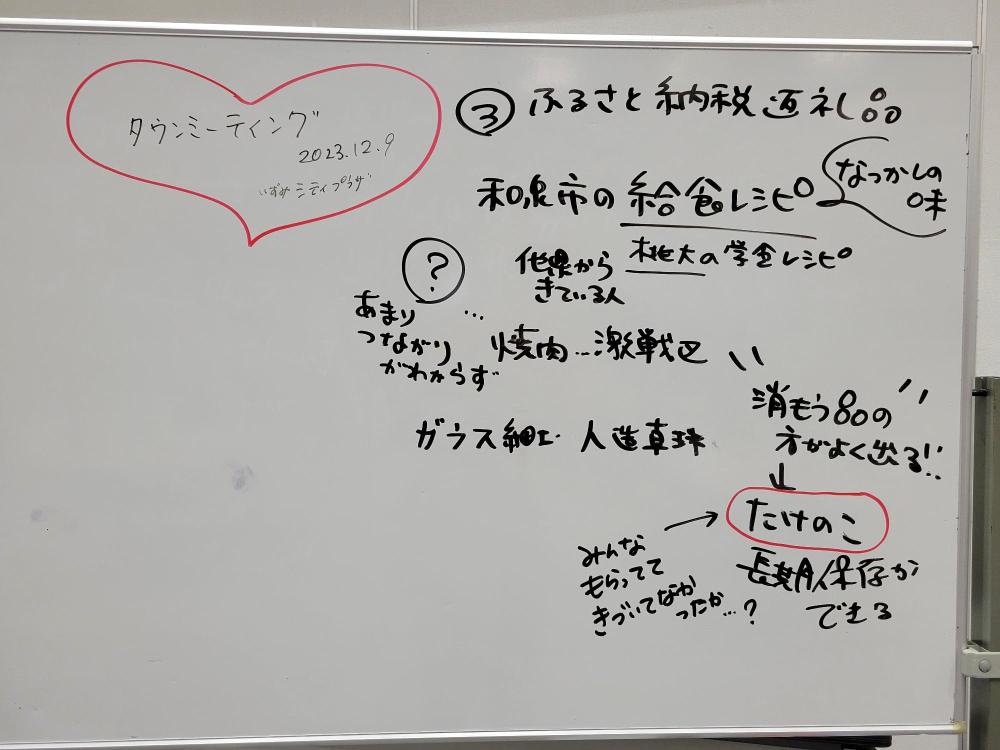 タウンミーティング
2023.12.9
いずみシティプラザ
③ ふるさと納税返礼品
和泉市の給食レシピ
なつかしの
味
桃大の学食レシピ
他県から
きている人
?
あまり
つながり
がわからず
...
焼肉...激戦区
ガラス細工 人造真珠
消もう80の
方がよく出る!!
↓
たけのこ
長期保存が
できる
→
みんな
もらってて
きづいてなか
ったか...?